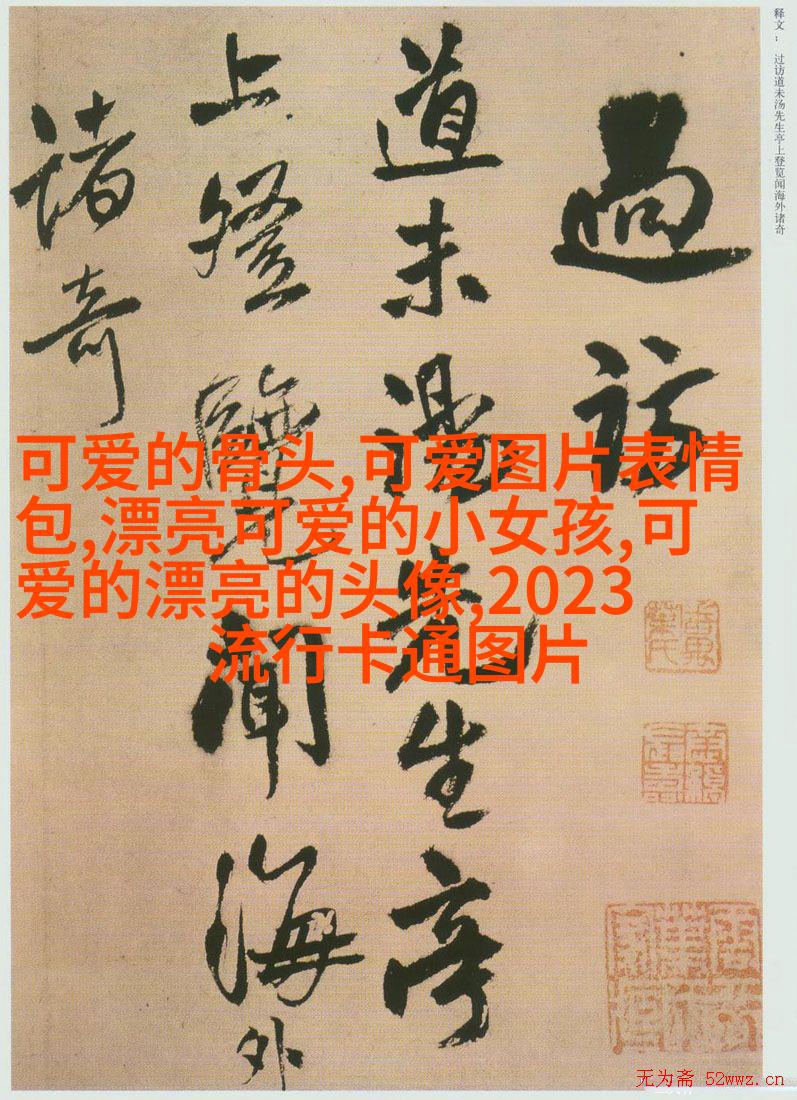 释文： 过访道未汤先生亭上登览闻海外诸奇
過訪
道未湯先生亭
上登覽聞海外
諸奇
可爱的骨头,可爱图片表情
包,漂亮可爱的小女孩,可
爱的漂亮的头像,2023
流行卡通图片
无为斋 52wwz.cn